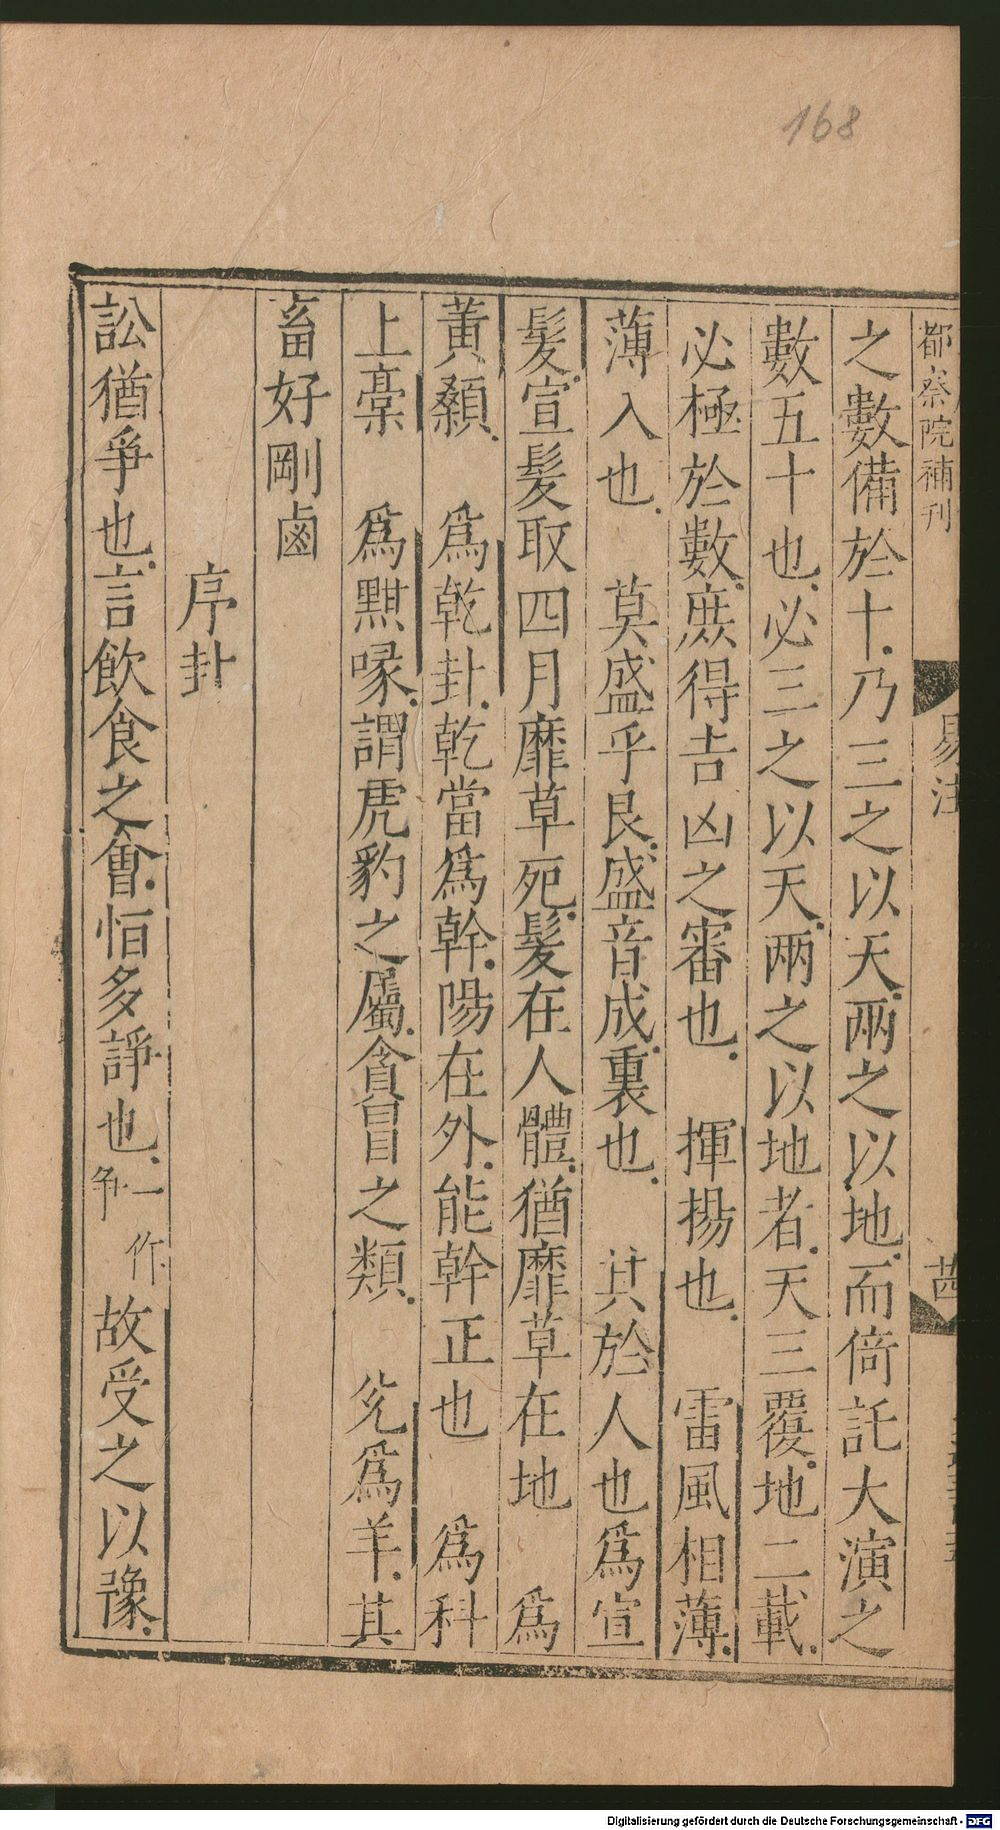 168
都察院補刊
易注
之數備於十.乃三之以天.兩之以地.而倚託大演之
數五十也.必三之以天.兩之以地者.天三覆.地二載.
必極於數.庶得吉凶之審也.　揮揚也.　雷風相薄.
薄入也.　莫盛乎艮.盛音成.裏也.　其於人也爲宣
髮.宣髮取四月靡草死.髮在人體.猶靡草在地　爲
黃顙.　爲乾卦.乾當爲幹.陽在外.能幹正也　爲科
上稾　爲黔喙.謂虎豹之屬.貪冒之類.　兊爲羊.其
畜好剛鹵
序卦
訟猶爭也.言飮食之會.恒多諍也.一作爭　故受之以豫.
Digitalisierung gefördert durch die Deutsche Forschungsgemeinschaft - DFG